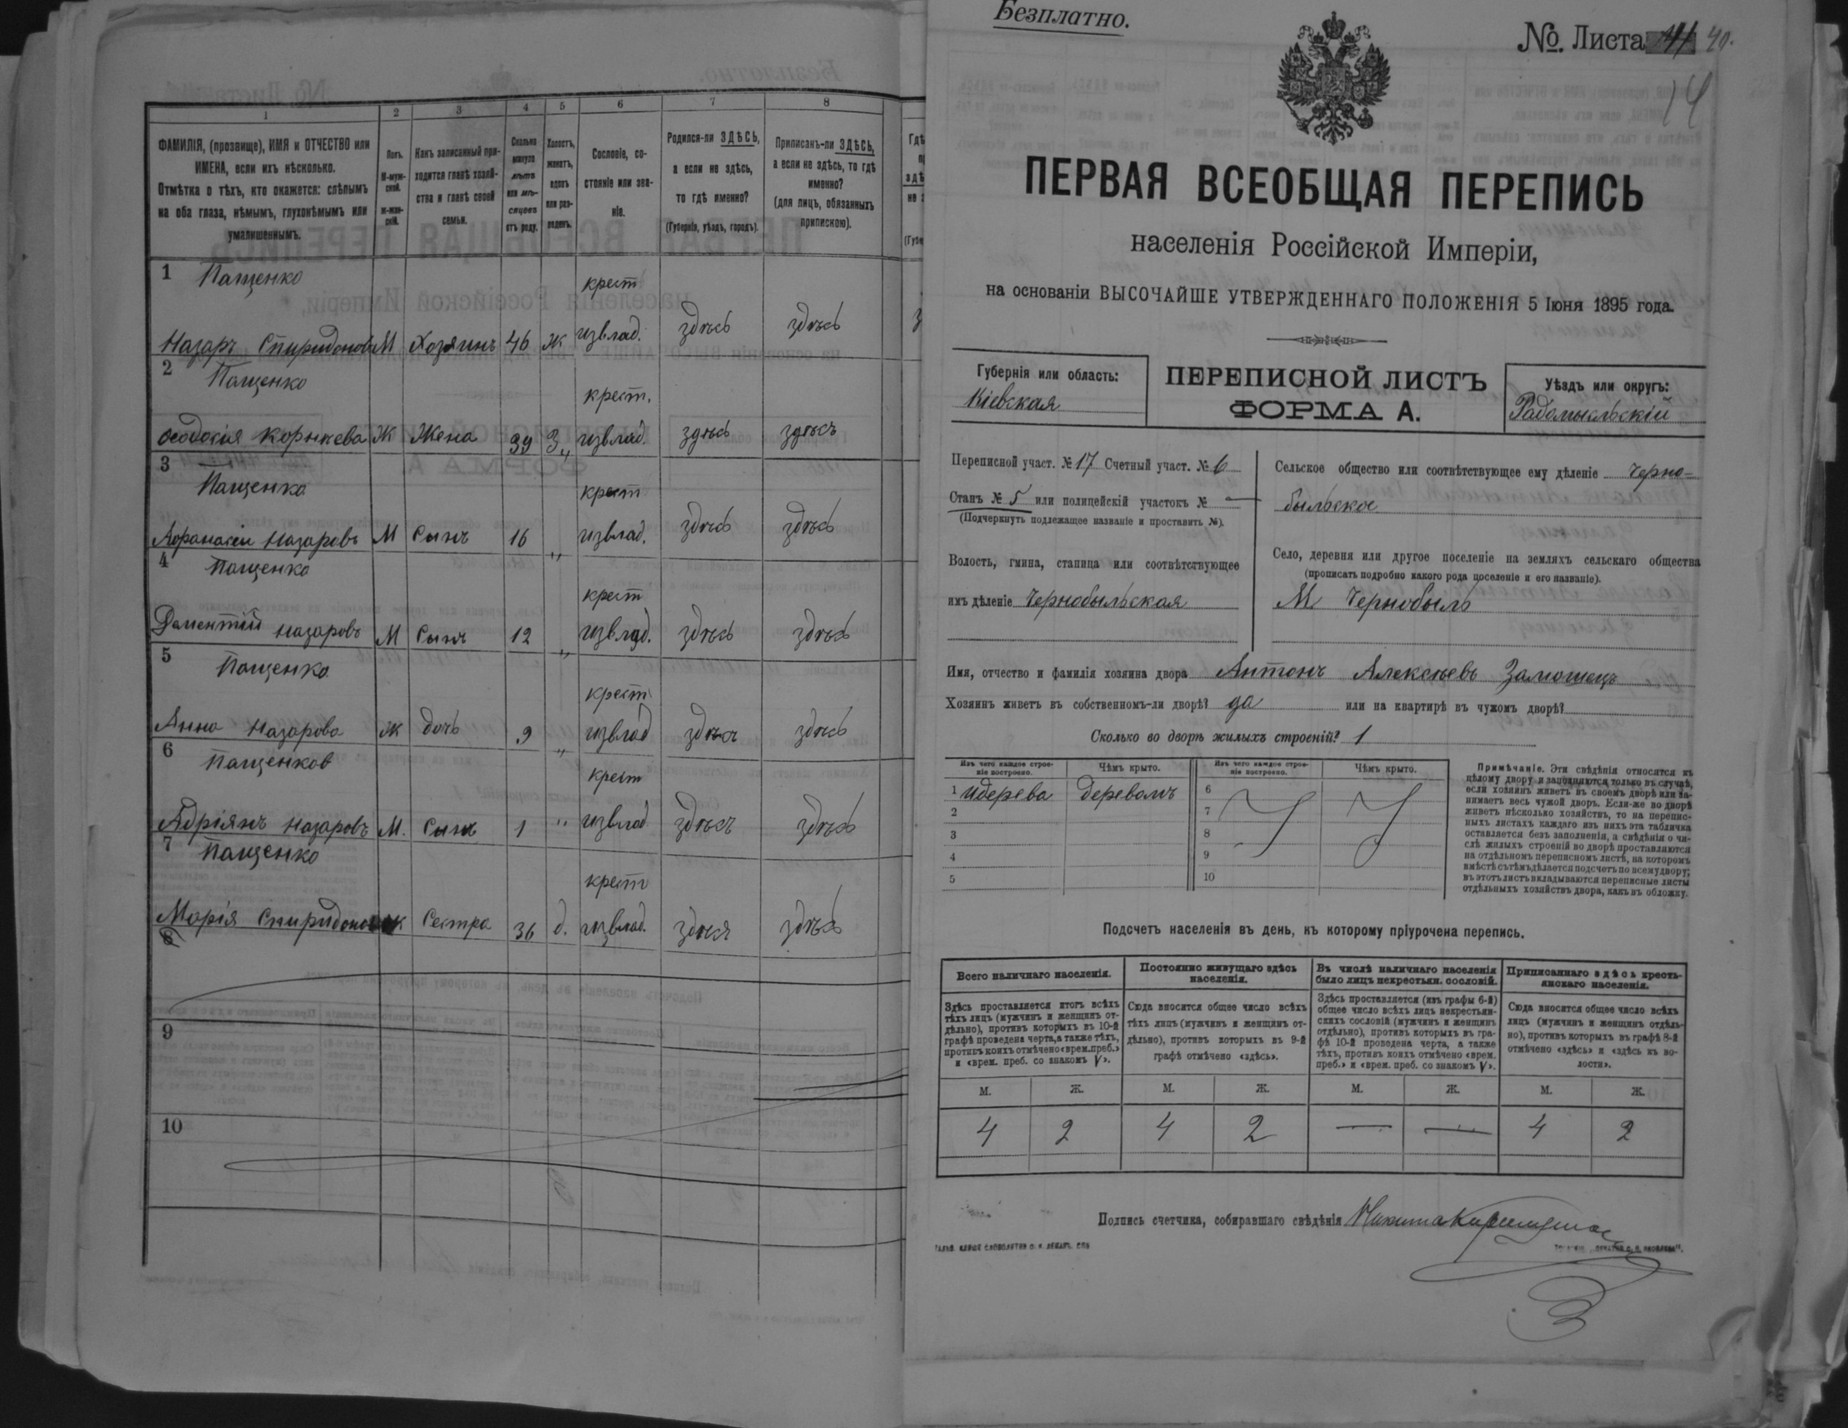 1
2
3
4
5
6
7
8
ФАМИЛІЯ, (прозвище), ИМЯ и ОТЧЕСТВО или
ИМЕНА, если ихъ нѣсколько.
Отмѣтка о тѣхъ, кто окажется: слѣпымъ
на оба глаза, нѣмымъ, глухонѣмымъ или
умалишеннымъ.
Полъ.
М-муж-
ской.
Ж-жен-
скій.
Какъ записанный при-
ходится главѣ хозяй-
ства и главѣ своей
семьи.
Сколько
минуло
лѣтъ
или мѣ-
сяцевъ
отъ роду.
Холостъ,
женатъ,
вдовъ
или раз-
веденъ.
Сословіе, со-
стояніе или зва-
ніе.
Родился-ли ЗДѢСЬ,
а если не здѣсь,
то гдѣ именно?
(Губернія, уѣздъ, городъ).
Приписанъ-ли ЗДѢСЬ,
а если не здѣсь, то гдѣ
именно?
(для лицъ, обязанныхъ
припискою).
1 Пащенко крест
Назаръ Спиридоновъ М Хозяинъ 46 ж извлад. здѣсь здѣсь
2 Пащенко крест.
Ѳеодосія Корнкева Ж Жена 39 З„ извлад. здѣсь здѣсь
3 Пащенко крест
Афанасій Назаровъ М Сынъ 16 „ извлад. здѣсь здѣсь
4 Пащенко крест
Дементій Назаровъ М Сынъ 12 „ извлад. здѣсь здѣсь
5 Пащенко крест
Анна Назарова Ж дочь 9 „ извлад здѣсь здѣсь
6 Пащенков крест
Адріянъ Назаровъ М. Сынъ 1 „ извлад здѣсь здѣсь
7 Пащенко крест
Марія Ж Сестра 36 д. извлад. здѣся здѣсь
8
9
10
Безплатно.
№. Листа 40.
14
ПЕРВАЯ ВСЕОБЩАЯ ПЕРЕПИСЬ
населенія Россійской Имперіи,
на основаніи ВЫСОЧАЙШЕ УТВЕРЖДЕННАГО ПОЛОЖЕНІЯ 5 Іюня 1895 года.
Губернія или область:
Кіевская
ПЕРЕПИСНОЙ ЛИСТЪ
ФОРМА А.
Уѣздъ или округъ:
Радомысльскій
Переписной участ. № 17 Счетный участ. № 6
Станъ № 5 или полицейскій участокъ № —
(Подчеркнуть подлежащее названіе и проставить №).
Волость, гмина, станица или соотвѣтствующее
имъ дѣленіе Чернобыльская
Сельское общество или соотвѣтствующее ему дѣленіе Черно=
быльское
Село, деревня или другое поселеніе на земляхъ сельскаго общества
(прописать подробно какого рода поселеніе и его названіе).
М Чернобыль
Имя, отчество и фамилія хозяина двора Антонъ Алексѣевъ Замошецъ
Хозяинъ живетъ въ собственномъ-ли дворѣ? да или на квартирѣ въ чужомъ дворѣ?
Сколько во дворѣ жилыхъ строеній? 1
Изъ чего каждое строе-
ніе построено.
Чѣмъ крыто.
Изъ чего каждое строе-
ніе построено.
Чѣмъ крыто.
1 издерева деревомъ 6
2 7
3 8
4 9
5 10
Примѣчаніе. Эти свѣдѣнія относятся къ
цѣлому двору и заполняются только въ случаѣ,
если хозяинъ живетъ въ своемъ дворѣ или за-
нимаетъ весь чужой дворъ. Если-же во дворѣ
живетъ нѣсколько хозяйствъ, то на перепис-
ныхъ листахъ каждаго изъ нихъ эта табличка
оставляется безъ заполненія, а свѣдѣнія о чи-
слѣ жилыхъ строеній во дворѣ проставляются
на отдѣльномъ переписномъ листѣ, на которомъ
вмѣстѣ съ тѣмъ дѣлается подсчетъ по всему двору;
въ этотъ листъ вкладываются переписные листы
отдѣльныхъ хозяйствъ двора, какъ въ обложку.
Подсчетъ населенія въ день, къ которому пріурочена перепись.
Всего наличнаго населенія.
Здѣсь проставляется итогъ всѣхъ
тѣхъ лицъ (мужчинъ и женщинъ от-
дѣльно), противъ которыхъ въ 10-й
графѣ проведена черта, а также тѣхъ,
противъ коихъ отмѣчено «врем. преб.»
и «врем. преб. со знакомъ V».
Постоянно живущаго здѣсь
населенія.
Сюда вносится общее число всѣхъ
тѣхъ лицъ (мужчинъ и женщинъ от-
дѣльно), противъ которыхъ въ 9-й
графѣ отмѣчено «здѣсь».
Въ числѣ наличнаго населенія
было лицъ некрестьян. сословій.
Здѣсь проставляется (изъ графы 6-й)
общее число всѣхъ лицъ некрестьян-
скихъ сословій (мужчинъ и женщинъ
отдѣльно), противъ которыхъ въ гра-
фѣ 10-й проведена черта, а также
тѣхъ, противъ коихъ отмѣчено «врем.
преб.» и «врем. преб. со знакомъ V».
Приписаннаго здѣсь кресть-
янскаго населенія.
Сюда вносится общее число всѣхъ
лицъ (мужчинъ и женщинъ отдѣль-
но), противъ которыхъ въ графѣ 8-й
отмѣчено «здѣсь» и «здѣсь въ во-
лости».
М. Ж. М. Ж. М. Ж. М. Ж.
4 2 4 2 — — 4 2
Подпись счетчика, собиравшаго свѣдѣнія Никита